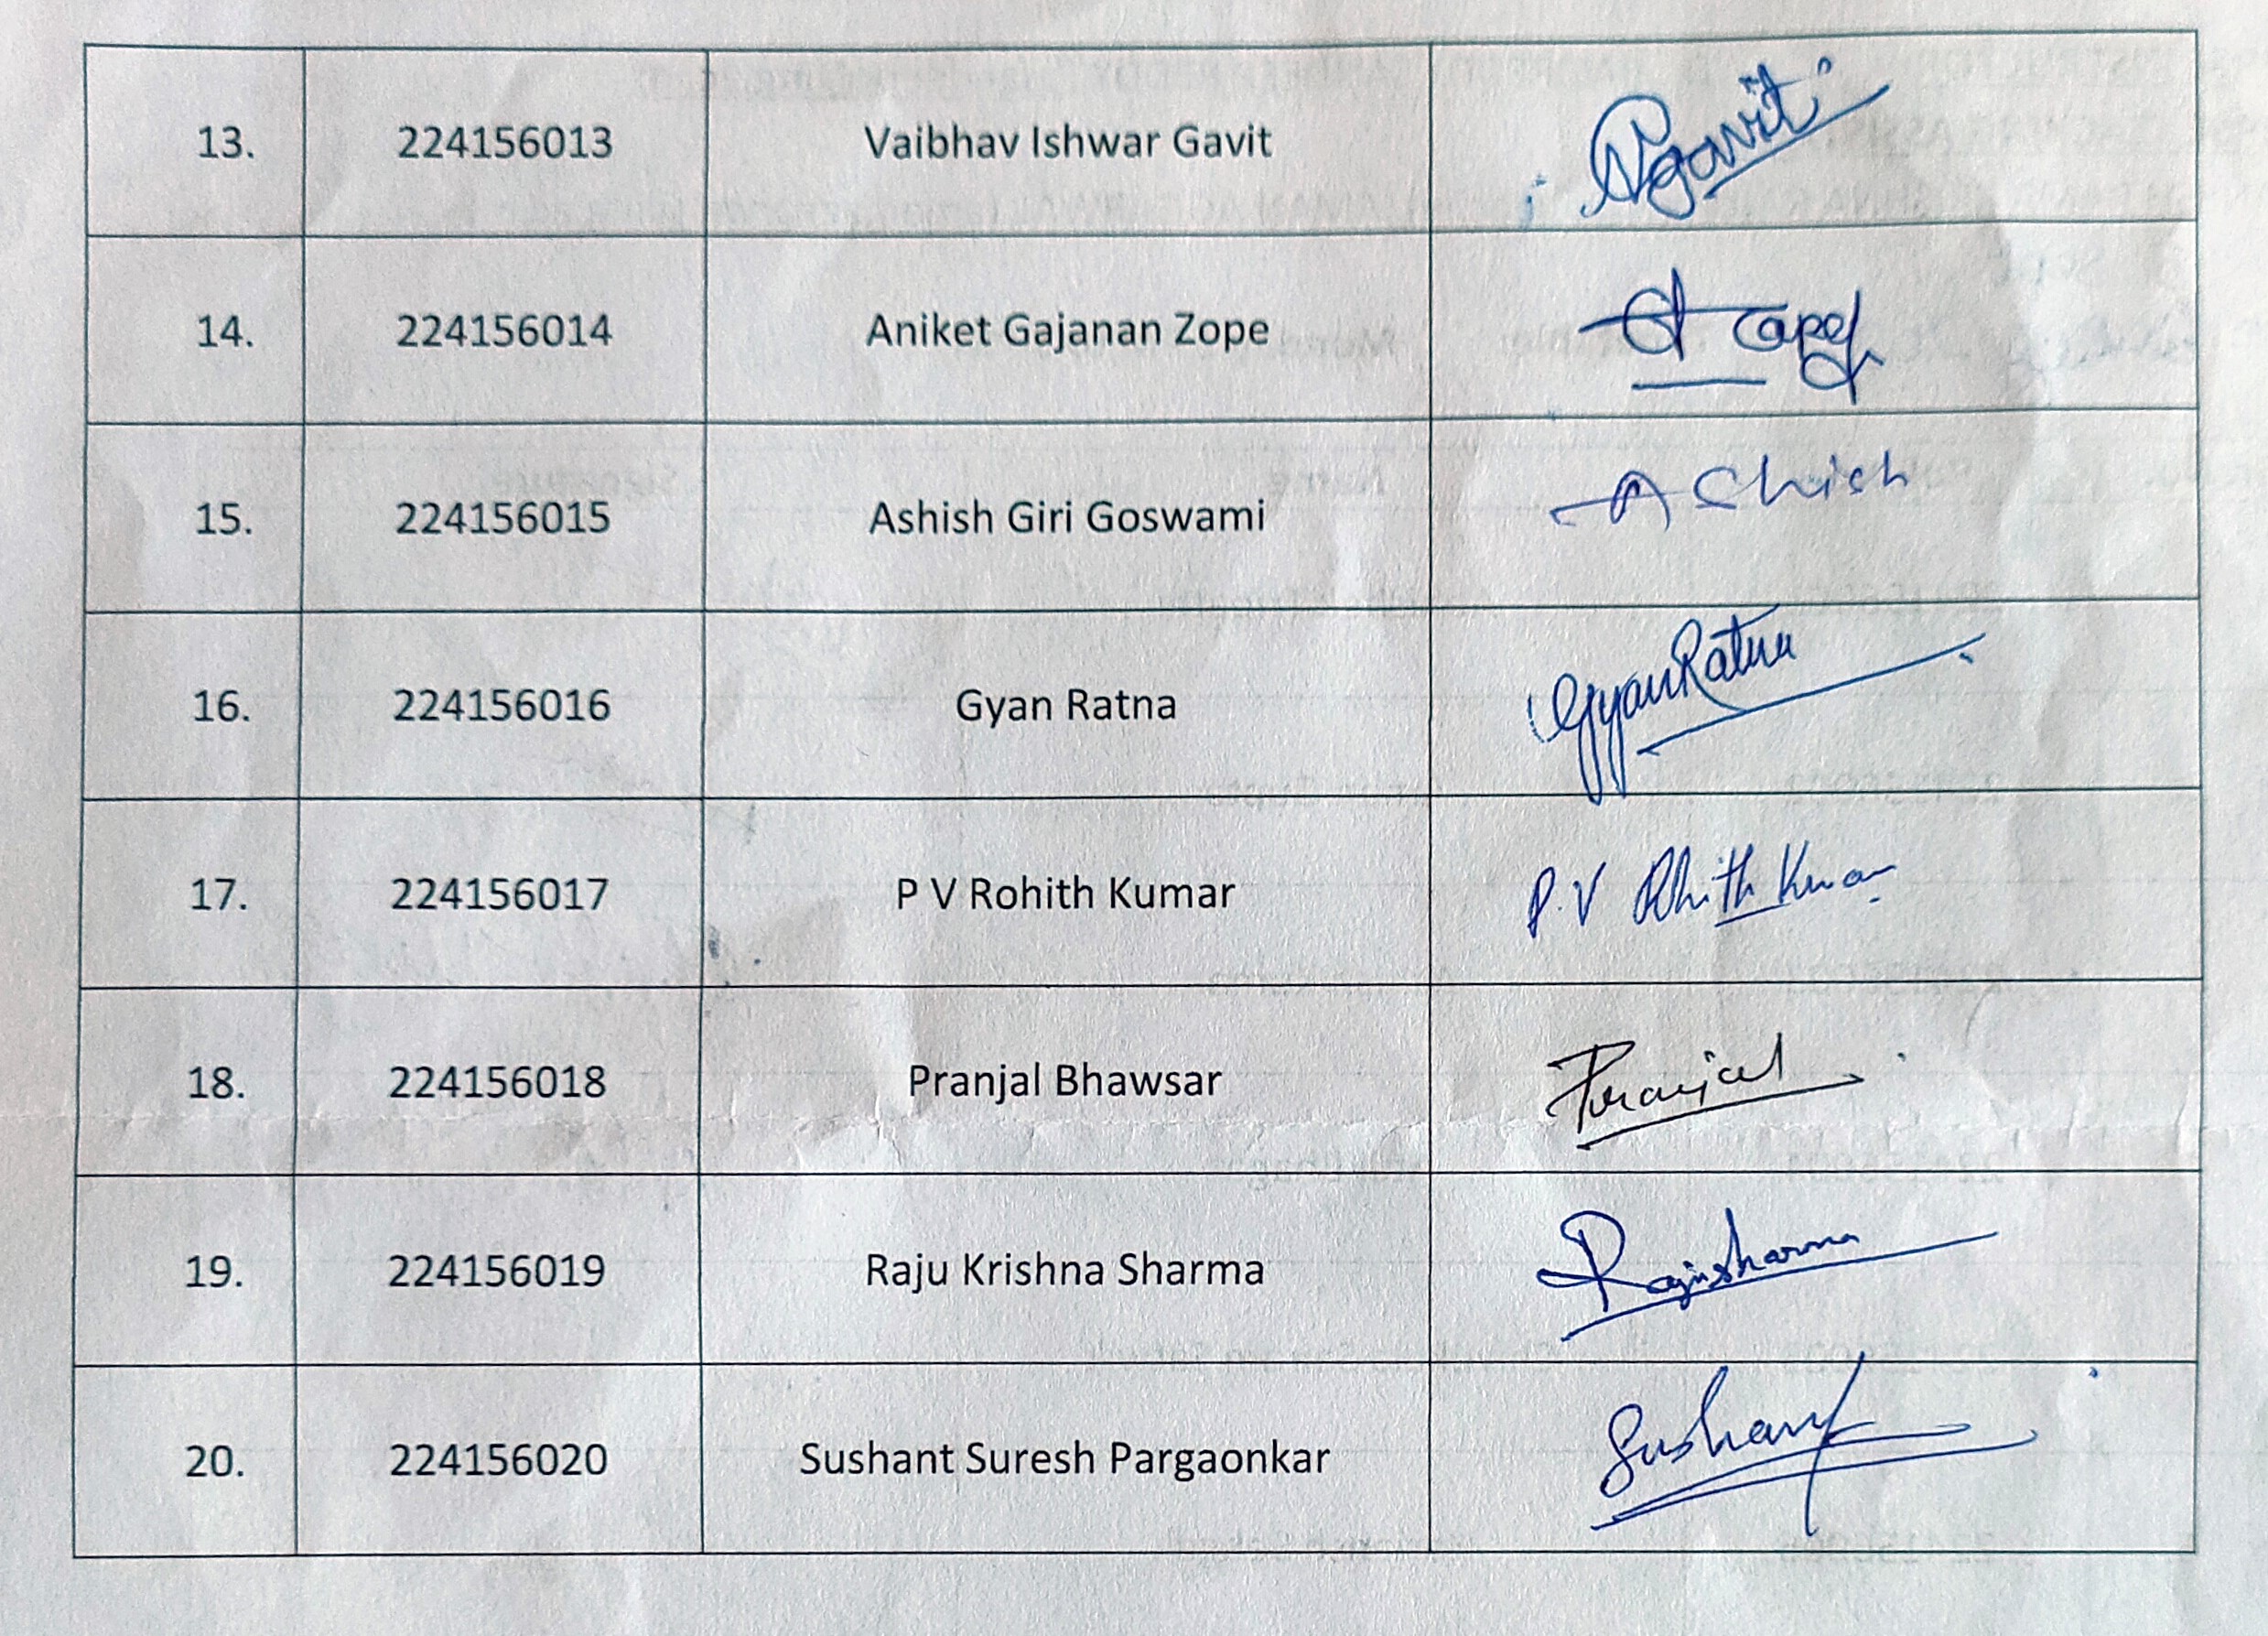 13. 224156013 Vaibhav Ishwar Gavit VGavit
14. 224156014 Aniket Gajanan Zope
15. 224156015 Ashish Giri Goswami Ashish
16. 224156016 Gyan Ratna GyanRatna
17. 224156017 P V Rohith Kumar P.V Rohith Kumar
18. 224156018 Pranjal Bhawsar Pranjal
19. 224156019 Raju Krishna Sharma Rajusharma
20. 224156020 Sushant Suresh Pargaonkar Sushant